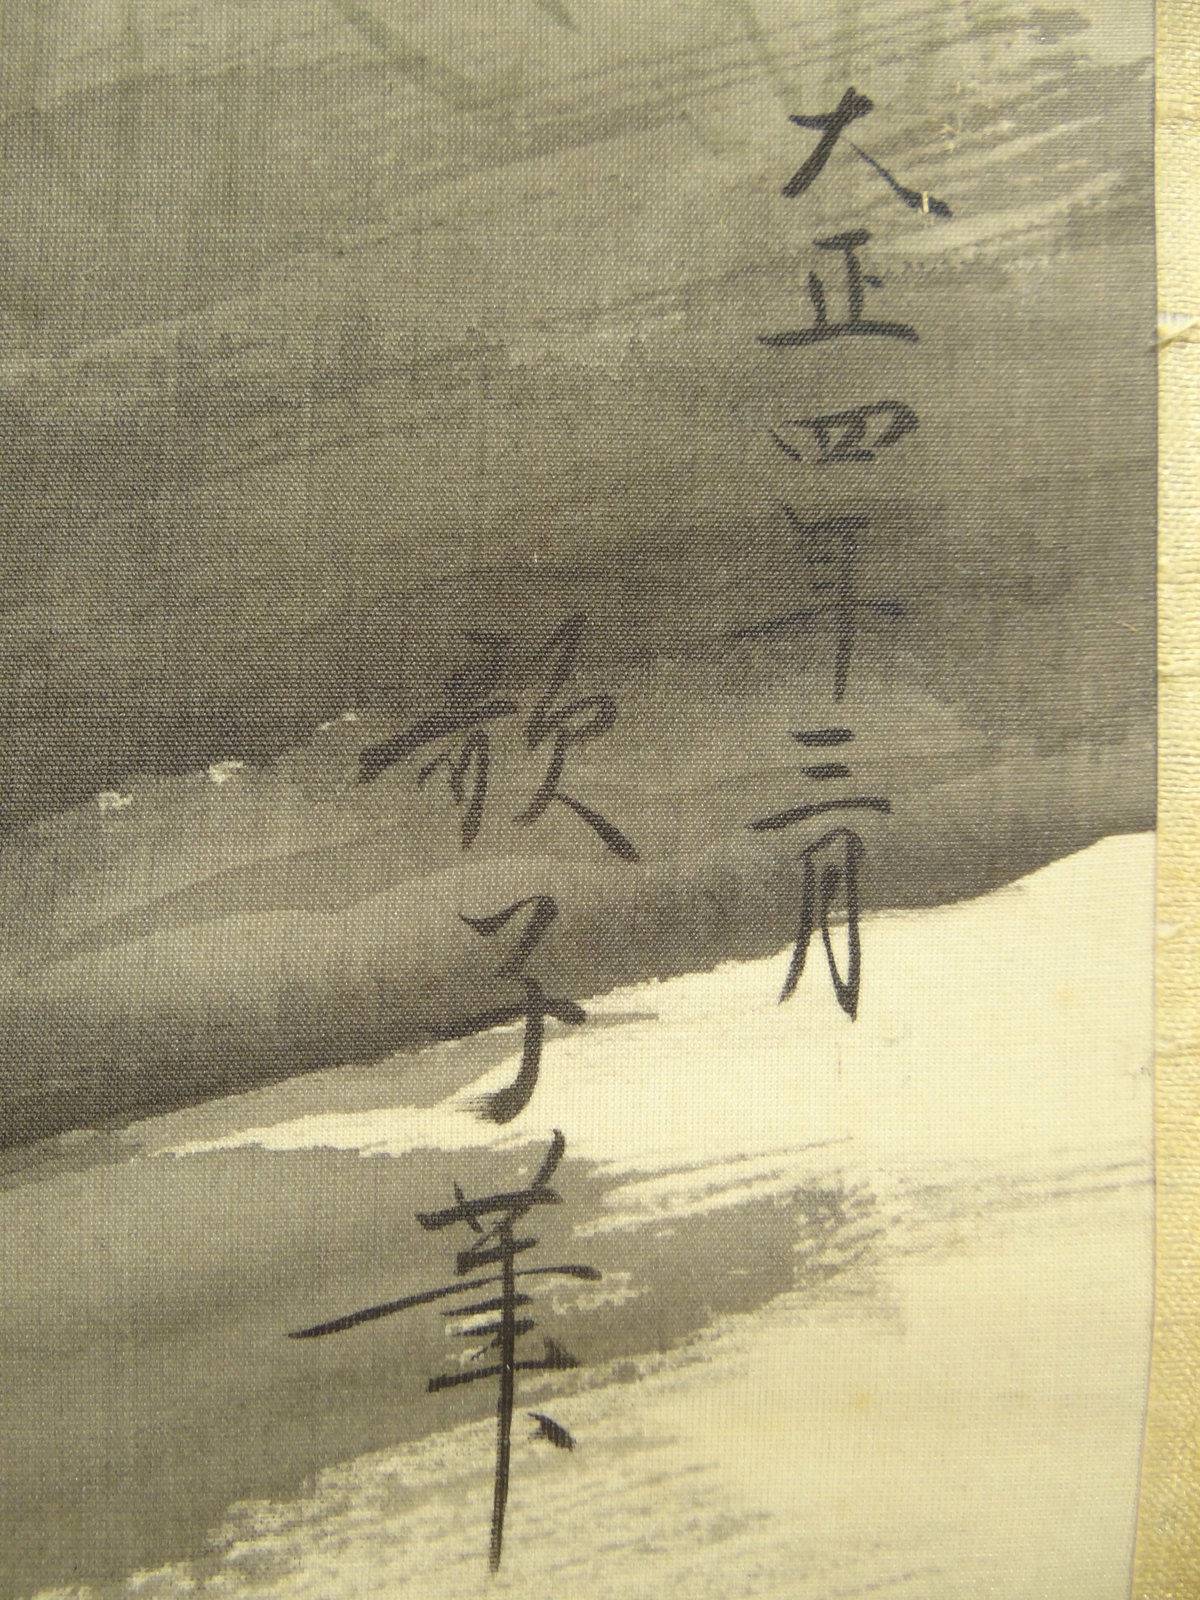 大正四年三月
子筆